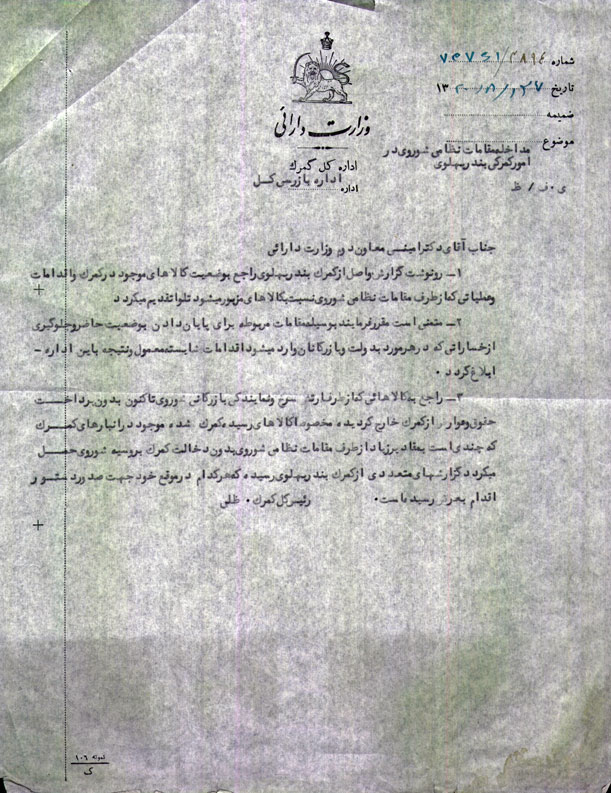 شماره ۷۵۷۴۱/۲۸۱۴
تاریخ ۱۳
ضمیمه
موضوع مداخله مقامات نظامی شوروی در
امور گمرکی بندر پهلوی
وزارت دارائی
اداره کل گمرک
اداره بازرسی کل
اداره
ی.ف/ظ
جناب آقای دکتر امینی معاون دوم وزارت دارائی
۱- رونوشت گزارش واصل از گمرک بندر پهلوی راجع بوضعیت کالاهای موجود در گمرک و اقدامات
و عملیاتی که از طرف مقامات نظامی شوروی نسبت بکالاهای مزبور میشود تلوا تقدیم میگردد
۲- متمنی است مقرر فرمایند بوسیله مقامات مربوطه برای پایان دادن بوضعیت حاضر و جلوگیری
از خساراتی که در هر مورد بدولت و بازرگانان وارد میشود اقدامات شایسته معمول و نتیجه باین اداره -
ابلاغ گردد.
۳- راجع بکالاهائی که از طرف ارتش سرخ و نمایندگی بازرگانی شوروی تاکنون بدون پرداخت
حقوق و عوارض از گمرک خارج گردیده مخصوصا کالاهای رسیده بگمرک شده موجود در انبارهای گمرک
که چندی است بمقادیر زیاد از طرف مقامات نظامی شوروی بدون دخالت گمرک بروسیه شوروی حمل
میگردد گزارشهای متعددی از گمرک بندر پهلوی رسیده که هرکدام در موقع خود جهت صدور دستور
اقدام بعرض رسیده است. رئیس کل گمرک. ظلی
نمونه ۱۰۶
ک